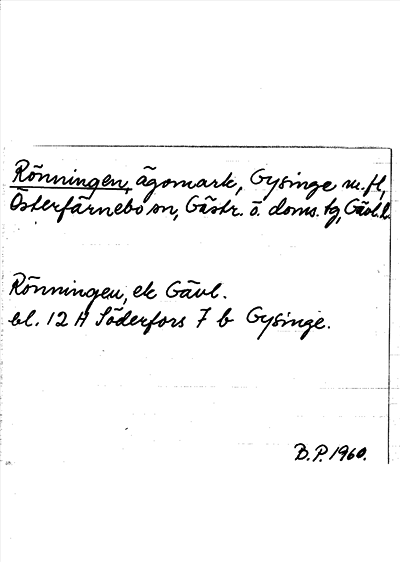 Rönningen, ägomark, Gysinge m.fl,
Österfärnebo sn, Gästr. ö. doms. tg, Gävl. l.
Rönningen, ek Gävl.
bl. 12 H Söderfors 7 b Gysinge.
B.P. 1960.